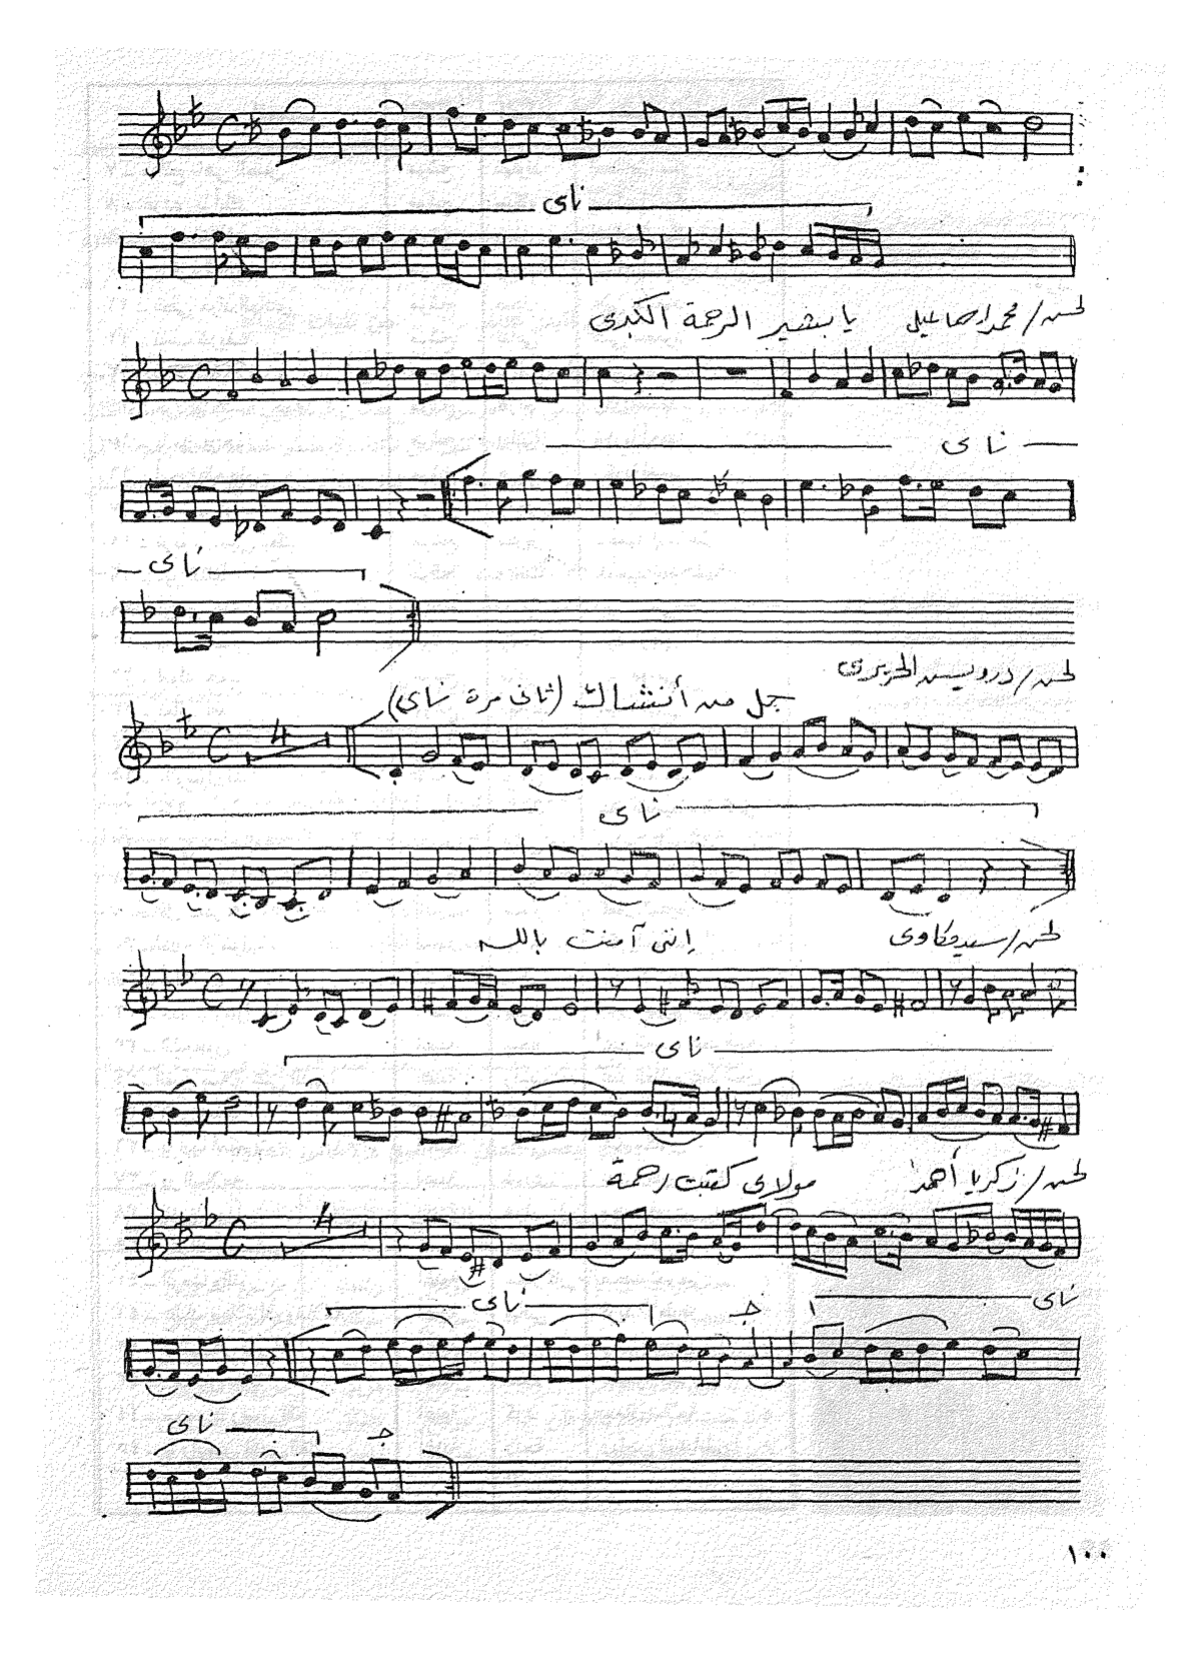 ناى
لحن/محمد اسماعيل يا بشير الرحمة الكبرى
ناى
ناى
لحن/درويش الحريرى
جل من أنشاك (ثانى مرة ناى)
4
ناى
لحن/سيد مكاوى إننى آمنت بالله
ناى
لحن/زكريا أحمد مولاى كتبت رحمة
4
ناى ج ناى
ناى ج
١٠٠